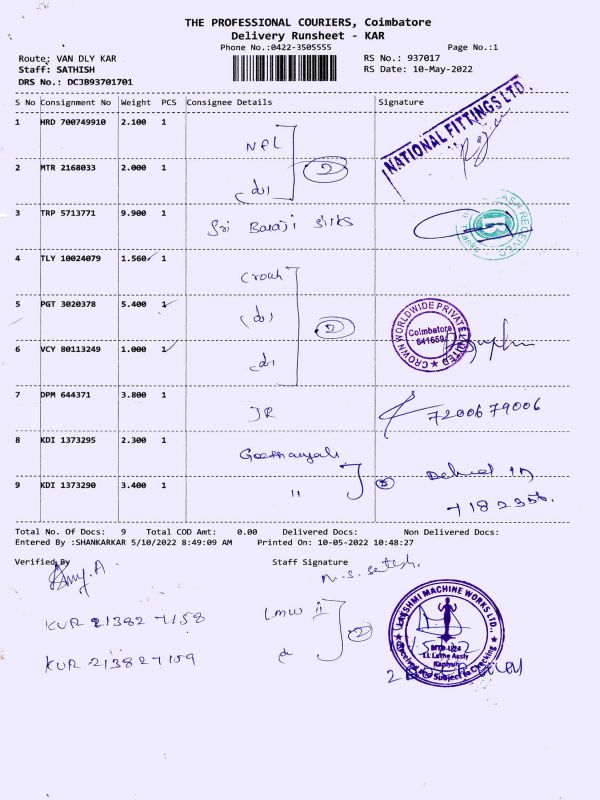 THE PROFESSIONAL COURIERS, Coimbatore
Delivery Runsheet - KAR
Phone No.:0422-3505555
Page No.:1
Route: VAN DLY KAR
RS No.: 937017
Staff: SATHISH
RS Date: 10-May-2022
DRS No.: DCJB93701701
S No Consignment No Weight PCS Consignee Details Signature
1 HRD 700749910 2.100 1 NFL
NATIONAL FITTINGS LTD.
2 MTR 2168033 2.000 1 do 2
3 TRP 5713771 9.900 1 Sri Balaji Silks
CASH RECEIVED
4 TLY 10024079 1.560 1 Crown
5 PGT 3020378 5.400 1 do
CROWN WORLDWIDE PRIVATE LIMITED
Coimbatore
641659
6 VCY 80113249 1.000 1 do
7 DPM 644371 3.800 1 JR 7200679006
8 KDI 1373295 2.300 1 Geethanjali
9 KDI 1373290 3.400 1 "
Total No. Of Docs: 9 Total COD Amt: 0.00 Delivered Docs: Non Delivered Docs:
Entered By :SHANKARKAR 5/10/2022 8:49:09 AM Printed On: 10-05-2022 10:48:27
Verified By
Staff Signature
KUR 213827158 LMW
KUR 213827159 2
LAKSHMI MACHINE WORKS LTD.
Received and Subject to Checking